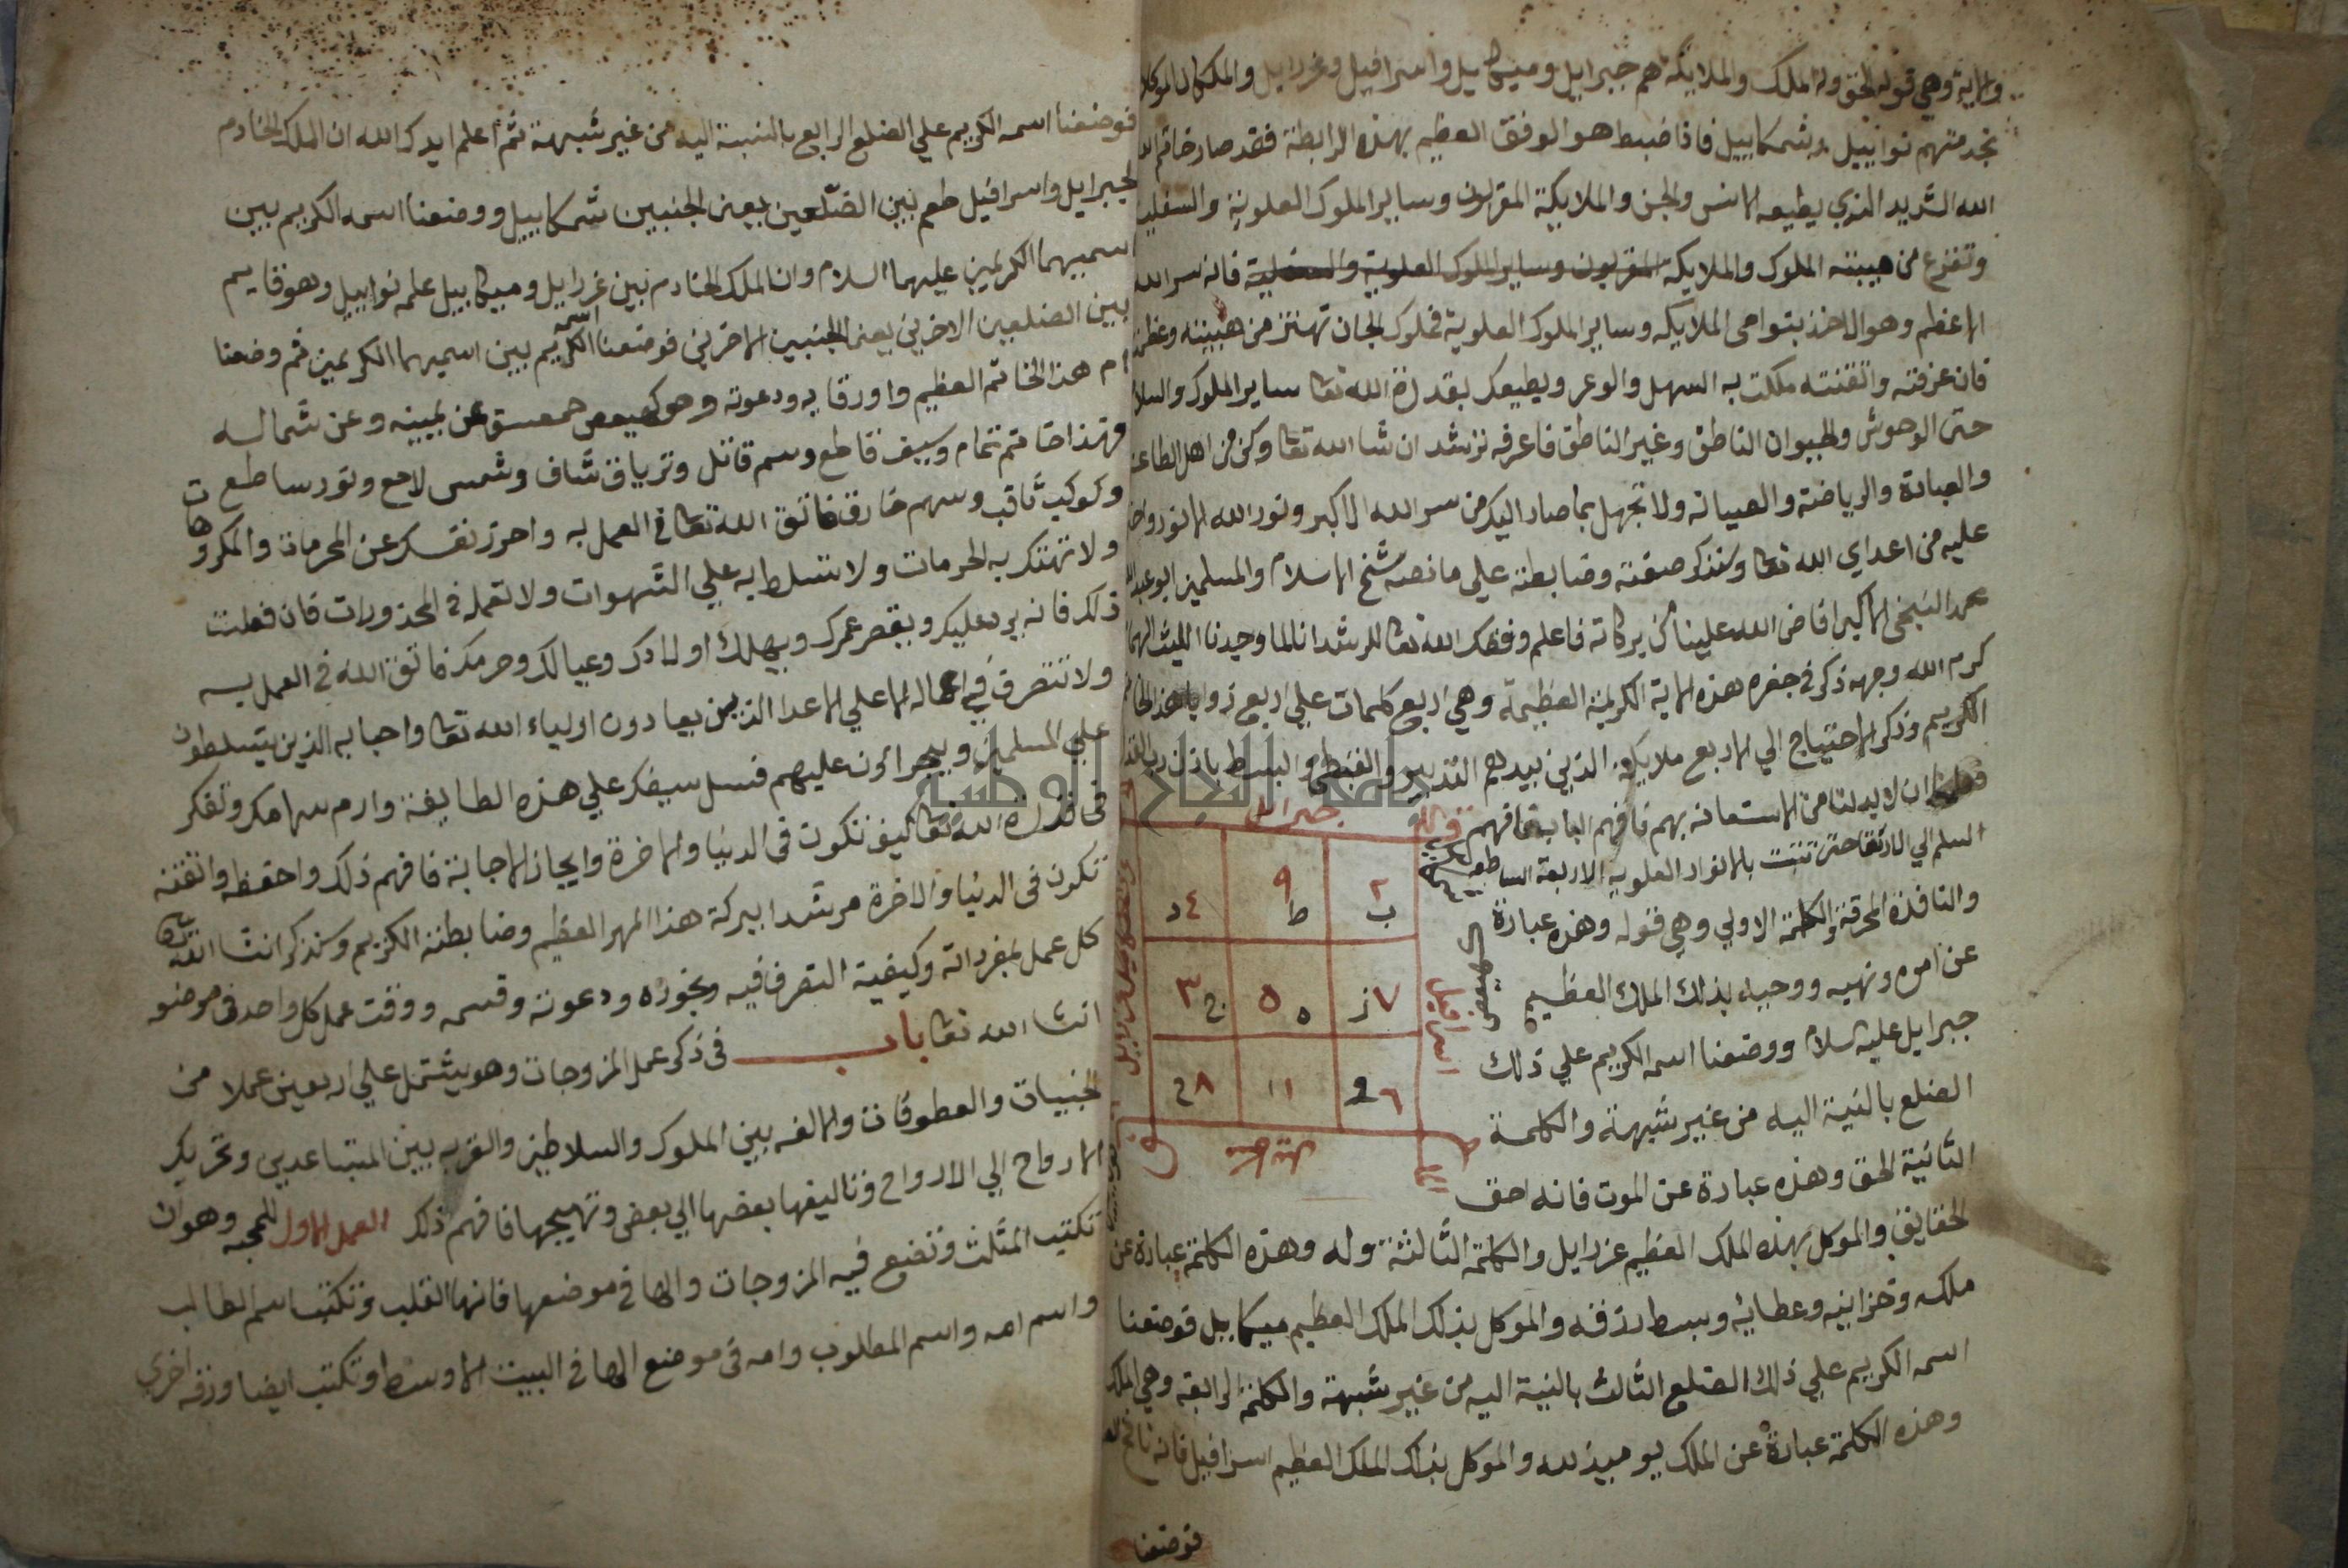 والاية وهي قوله الحق وله الملك والملايكة هم جبرايل وميكاييل واسرافيل وعزرايل والملكان الموكلا
بخدمتهم نواييل وشمكاييل فاذا ضبط هو الوفق العظيم بهذه الرابطة فقد صار خاتم
الله الشديد الذي يطيعه الانس والجن والملايكة المقربون وساير الملوك العلوية والسفلية
وتفزع من هيبته الملوك والملايكة المقربون وساير الملوك العلوية والسفلية فانه سر الله
الاعظم وهو الاخذ بنواصي الملايكه وساير الملوك العلوية فملوك الجان تهتز من هيبته
فان عرفته واتقنته ملكت به السهل والوعر ويطيعك بقدرة الله تعا ساير الملوك
حتى الوحوش والحيوان الناطق وغير الناطق فاعرفه ترشد ان شا الله تعا وكن من اهل الطاعة
والعبادة والرياضة والصيانه ولا تجهل بما صار اليك من سر الله الاكبر ونور الله الانور
عليه من اعداي الله تعا وسنذكر صفته وضابطته علي ما نصه شيخ الاسلام والمسلمين ابو عبد
الاكبر افاض الله علينا من بركاته فاعلم وفقك الله تعا للرشد اننا لما وجدنا الليث
كرم الله وجهه ذكر في جفره هذه الاية الكريمة العظيمة وهي اربع كلمات علي اربع زوايا هذا
الكريم وذكر الاحتياج الي الاربع ملايكة الذين بيدهم التدبير والقبض والبسط باذن
ان لا بد لنا من الاستعانه بهم فافهم
السلم الي الارتقا حتى تثبت بالانوار العلوية الاربعة الساطعة
والنافذة المحرقة والكلمة الاولي وهي قوله وهذه عبارة
عن امره ونهيه ووحيه بذلك الملك العظيم
جبرايل عليه السلام ووضعنا اسمه الكريم علي ذلك
الضلع بالنية اليه من غير شبهة والكلمة
الثانية الحق وهذه عبارة عن الموت فانه احق
الحقايق والموكل بهذه الملك العظيم عزرايل والكلمة الثالثة وله وهذه الكلمة عبارة عن
ملكه وخزاينه وعطايه وبسط رزقه والموكل بذلك الملك العظيم ميكاييل فوضعنا
اسمه الكريم علي ذلك الضلع الثالث بالنية اليه من غير شبهة والكلمة الرابعة وهي الملك
وهذه الكلمة عبارة عن الملك يوميذ لله والموكل بذلك الملك العظيم اسرافيل فانه
فوضعنا
جبرائيل
٢ ب ٩ ط ٤ د
٧ ز ٥ ه ٣ ج
٦ و ١ ا ٨ ح
اسرافيل
فوضعنا اسمه الكريم علي الضلع الرابع بالنسبة اليه من غير شبهة ثم اعلم ايدك الله ان الملك الخادم
لجبرايل واسرافيل طعم بين الضلعين يعني الجنبين شمكاييل ووضعنا اسمه الكريم بين
اسميهما الكريمين عليهما السلام وان الملك الخادم بين عزرايل وميكاييل علمه نواييل وهو قايم
بين الضلعين الاخرين يعني الجنبين الاخرين فوضعنا اسمه الكريم بين اسميهما الكريمين ثم وضعنا
ام هذا الخاتم العظيم واورقايه ودعوته وهو كهيعص حمعسق عن يمينه وعن شماله
فهذا خاتم تمام وسيف قاطع وسم قاتل وترياق شاف وشمس لامع ونور ساطع
وكوكب ثاقب وسهم خارق فاتق الله تعا في العمل به واحرز نفسك عن المحرمات والمكروهات
ولا تهتك به الحرمات ولا تتسلط به علي الشهوات ولا تعمله في المحذورات فان فعلت
ذلك فانه يرد عليك ويقصر عمرك ويهلك اولادك وعيالك وحرمك فاتق الله في العمل به
ولا تتصرف في اعماله الا علي الاعدا الذين يعادون اولياء الله تعا واحبابه الذين يتسلطون
علي المسلمين ويجراون عليهم فسل سيفك علي هذه الطايفة وارم سهامك وتفكر
في قدرة الله تعا كيف تكون في الدنيا والاخرة وايجاز الاجابة فافهم ذلك واحفظه واتقنه
تكون في الدنيا والاخرة مرشدا ببركة هذا المهر العظيم وضابطته الكريم وسنذكر انشا الله تعا
كل عمل بمفرداته وكيفية التصرف فيه وبخوره ودعوته وقسمه ووقت عمل كل واحد في موضعه
انشا الله تعا باب في ذكر عمل المزوجات وهو يشتمل علي اربعين عملا من
الجنبيات والعطوفات والالفه بين الملوك والسلاطين والقرب بين المتباعدين وتحريك
الارواح الي الارواح وتاليفها بعضها الي بعض وتهييجها فافهم ذلك العمل الاول للمحبه وهو ان
تكتب المثلث وتضع فيه المزوجات والها في موضعها فانها القلب وتكتب اسم الطالب
واسم امه واسم المطلوب وامه في موضع الها في البيت الاوسط وتكتب ايضا ورقه اخري
جامعة النجاح الوطنية